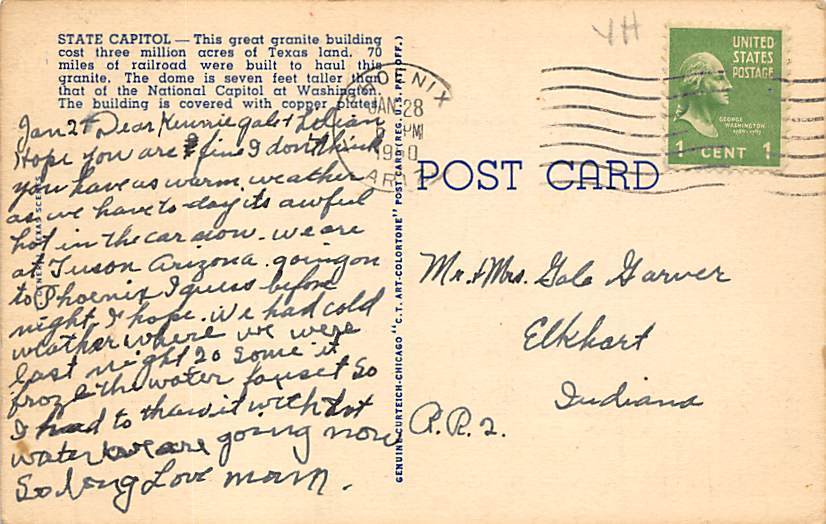 STATE CAPITOL — This great granite building
cost three million acres of Texas land. 70
miles of railroad were built to haul this
granite. The dome is seven feet taller than
that of the National Capitol at Washington.
The building is covered with copper plates.
Jan 27 Dear Gale + Lillian
Hope you are fine I dont think
you have as warm weather
as we have to day its awful
hot in the car now. we are
at Tuson Arizona. going on
to Phoenix I guess before
night I hope. We had cold
weather where we were
last night 20 some it
froze the water fauset so
I had to thaw it with hot
water we are going now
So long Love mom.
C.T. ART-COLORTONE" POST CARD (REG. U.S. PAT. OFF.)
GENUINE CURTEICH-CHICAGO "
TEXAS SCENES
POST CARD
YH
PHOENIX
JAN 28
PM
ARIZ.
UNITED
STATES
POSTAGE
GEORGE
WASHINGTON
1789-1797
1 CENT 1
Mr. + Mrs. Gale Garver
Elkhart
Indiana
R.R. 2.